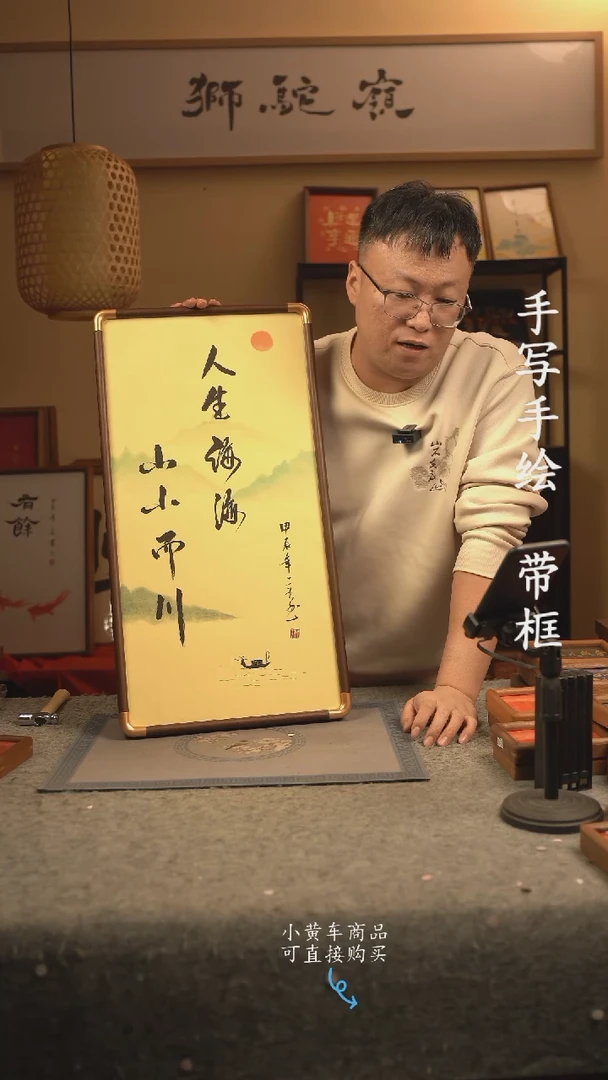 獅駝嶺
人生海海
山山而川
甲辰年
有餘
手写手绘 带框
小黄车商品
可直接购买